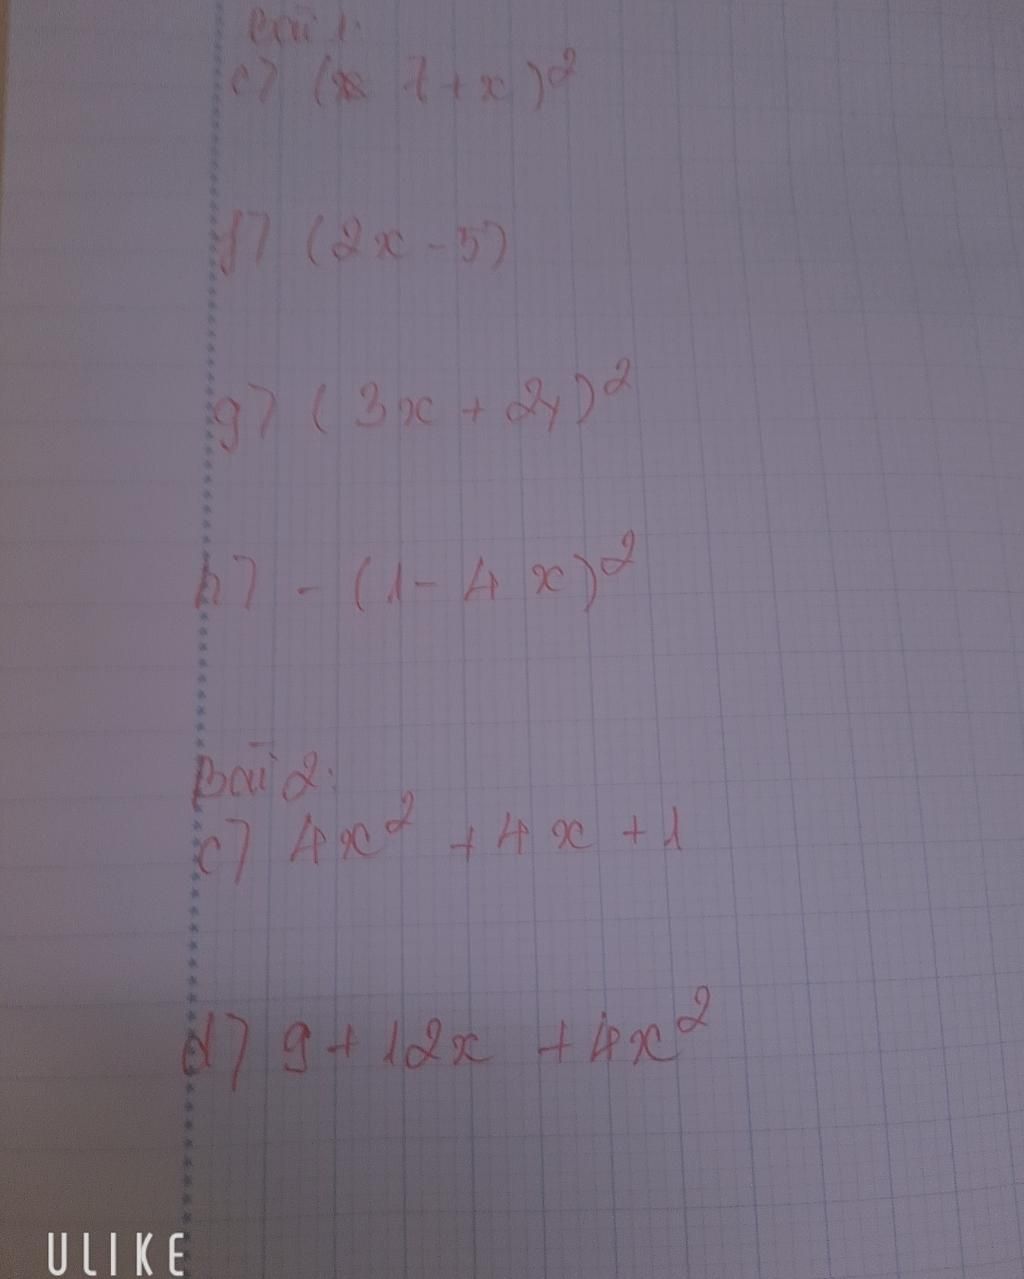 Bài 1:
e) (7+x)²
f) (2x-5)
g) (3x + 2y)²
h) - (1- 4x)²
Bài 2:
c) 4x² + 4x + 1
d) 9 + 12x + 4x²
ULIKE